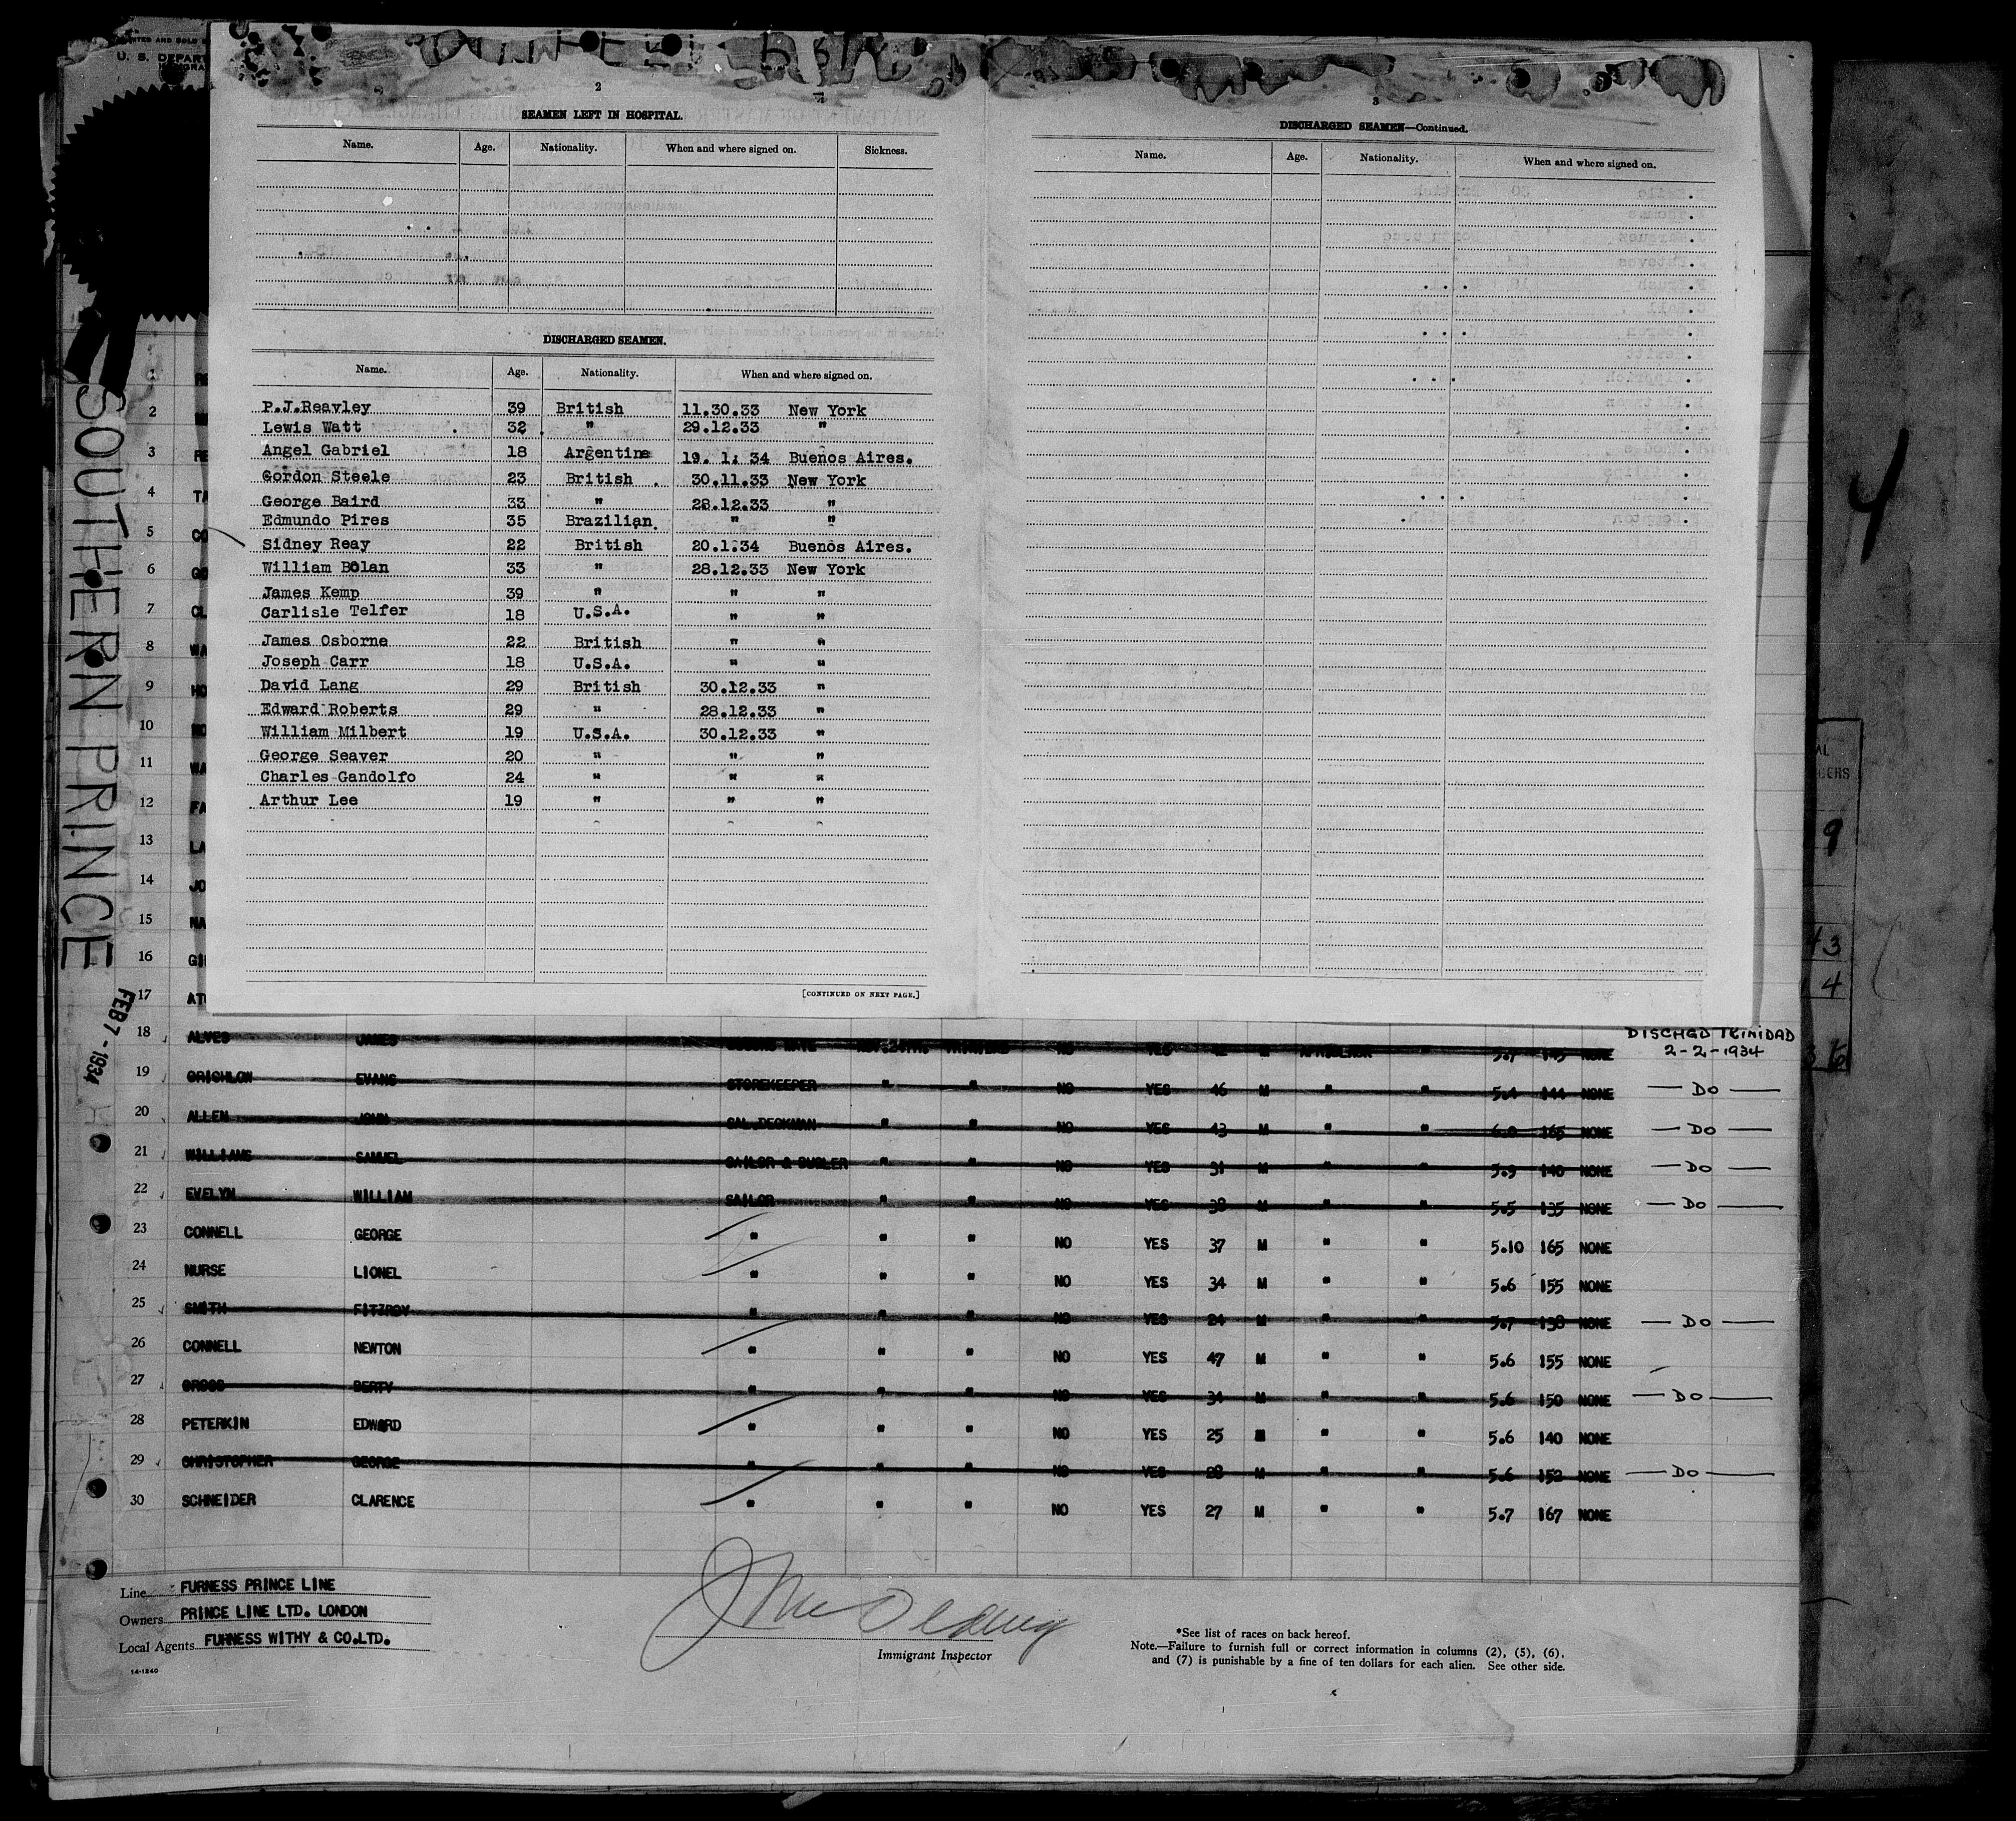 U. S. DEPAR
2
SEAMEN LEFT IN HOSPITAL.
Name. Age. Nationality. When and where signed on. Sickness.
DISCHARGED SEAMEN.
Name. Age. Nationality. When and where signed on.
P.J.Reavley 39 British 11.30.33 New York
Lewis Watt 32 " 29.12.33 "
Angel Gabriel 18 Argentine 19. 1. 34 Buenos Aires.
Gordon Steele 23 British 30.11.33 New York
George Baird 33 " 28.12.33 "
Edmundo Pires 35 Brazilian " "
Sidney Reay 22 British 20.1.34 Buenos Aires.
William Bolan 33 " 28.12.33 New York
James Kemp 39 " " "
Carlisle Telfer 18 U.S.A. " "
James Osborne 22 British " "
Joseph Carr 18 U.S.A. " "
David Lang 29 British 30.12.33 "
Edward Roberts 29 " 28.12.33 "
William Milbert 19 U.S.A. 30.12.33 "
George Seaver 20 " " "
Charles Gandolfo 24 " " "
Arthur Lee 19 " " "
[CONTINUED ON NEXT PAGE.]
3
DISCHARGED SEAMEN—Continued.
Name. Age. Nationality. When and where signed on.
SOUTHERN PRINCE
FEB 7 - 1934
4
1
2
3
4
5
6
7
8
9
10
11
12
13
14
15
16
17
9
43
4
DISCHGD TRINIDAD
2-2-1934
18 ALVES JAMES NO YES M 5.7 145 NONE
19 CRICHLOW EVANS STOREKEEPER " " NO YES 46 M " " 5.4 144 NONE — DO —
20 ALLEN JOHN " " NO YES 43 M " " 6.0 165 NONE — DO —
21 WILLIAMS SAMUEL SAILOR & BUGLER " " NO YES 31 M " " 5.9 140 NONE — DO —
22 EVELYN WILLIAM SAILOR " " NO YES 38 M " " 5.5 135 NONE — DO —
23 CONNELL GEORGE " " " NO YES 37 M " " 5.10 165 NONE
24 NURSE LIONEL " " " NO YES 34 M " " 5.6 155 NONE
25 SMITH FITZROY " " " NO YES 24 M " " 5.7 138 NONE — DO —
26 CONNELL NEWTON " " " NO YES 47 M " " 5.6 155 NONE
27 CROSS BERTY " " " NO YES 34 M " " 5.6 150 NONE — DO —
28 PETERKIN EDWARD " " " NO YES 25 M " " 5.6 140 NONE
29 CHRISTOPHER GEORGE " " " NO YES 28 M " " 5.6 152 NONE — DO —
30 SCHNEIDER CLARENCE " " " NO YES 27 M " " 5.7 167 NONE
Line FURNESS PRINCE LINE
Owners PRINCE LINE LTD. LONDON
Local Agents FURNESS WITHY & CO.LTD.
14-1240
Immigrant Inspector
*See list of races on back hereof.
Note.—Failure to furnish full or correct information in columns (2), (5), (6),
and (7) is punishable by a fine of ten dollars for each alien. See other side.